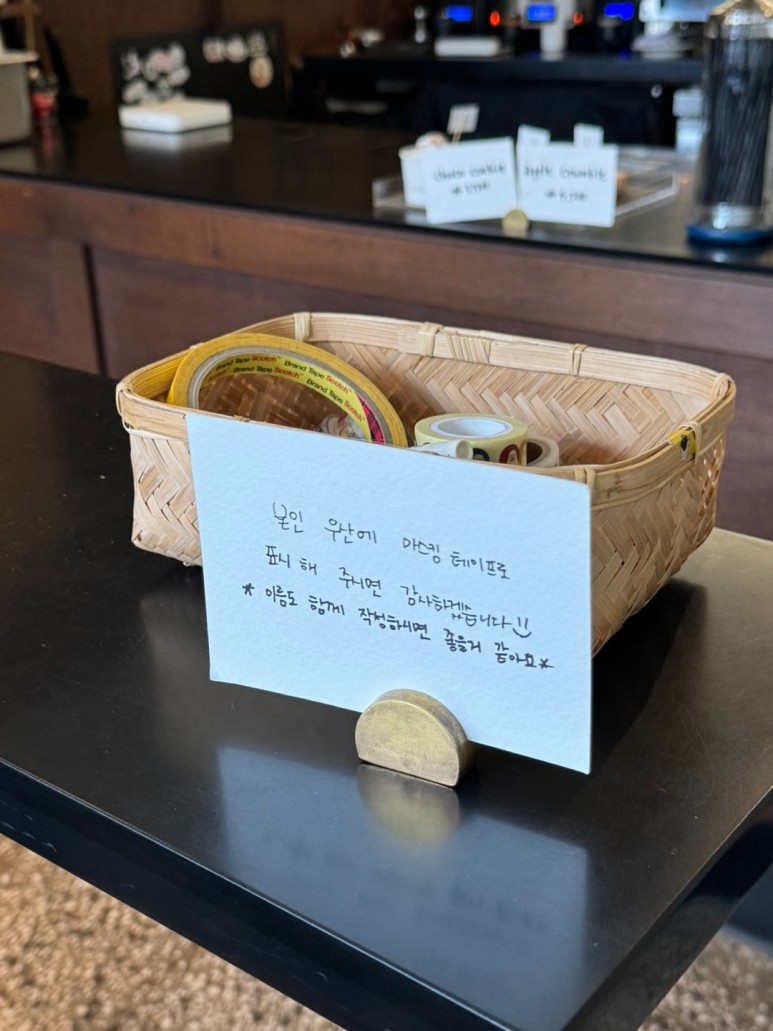 Brand Tape Scotch™ Brand Tape Scotch
Brand Tape Scotch™ Brand Tape Scotch
본인 우산에 마스킹 테이프로
표시 해 주시면 감사하겠습니다!!
* 이름도 함께 작성하시면 좋을거 같아요*